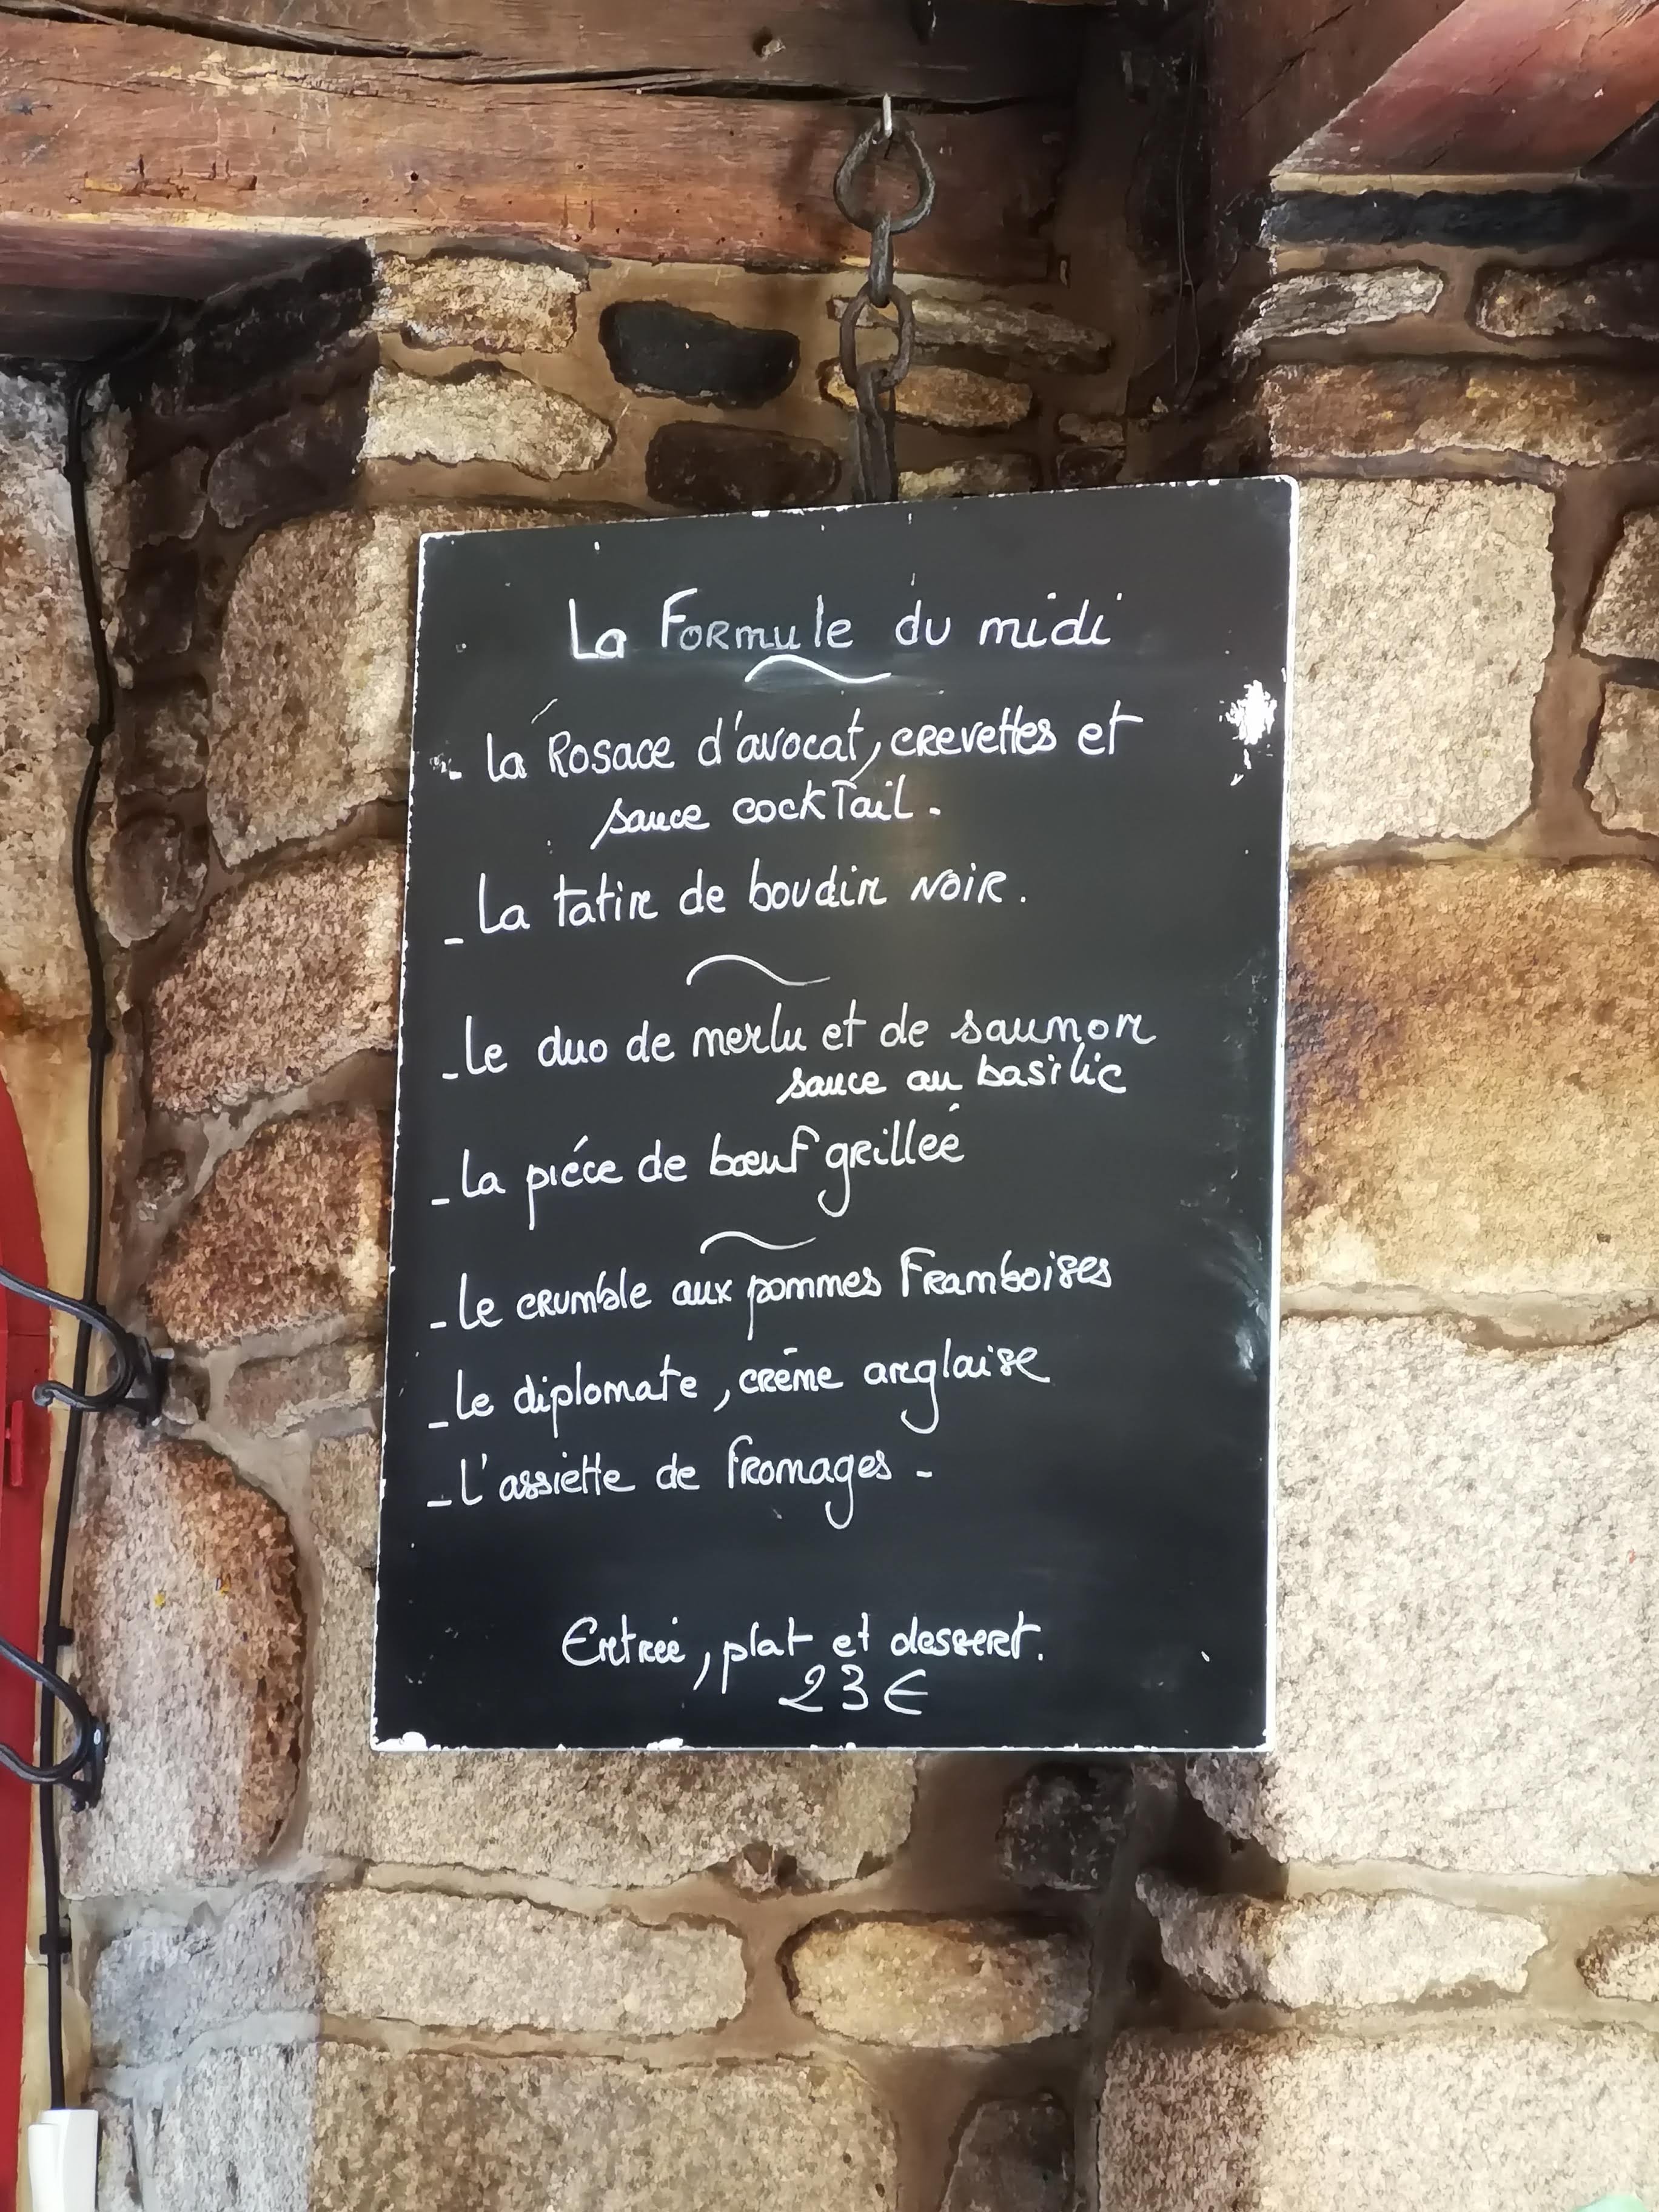 La Formule du midi
- La Rosace d'avocat, crevettes et
sauce cocktail.
- La tatin de boudin noir.
- Le duo de merlu et de saumon
sauce au basilic
- La piéce de bœuf grilleé
- Le crumble aux pommes Framboises
- Le diplomate, crème anglaise
- L'assiette de fromages -
Entreé, plat et dessert.
23€